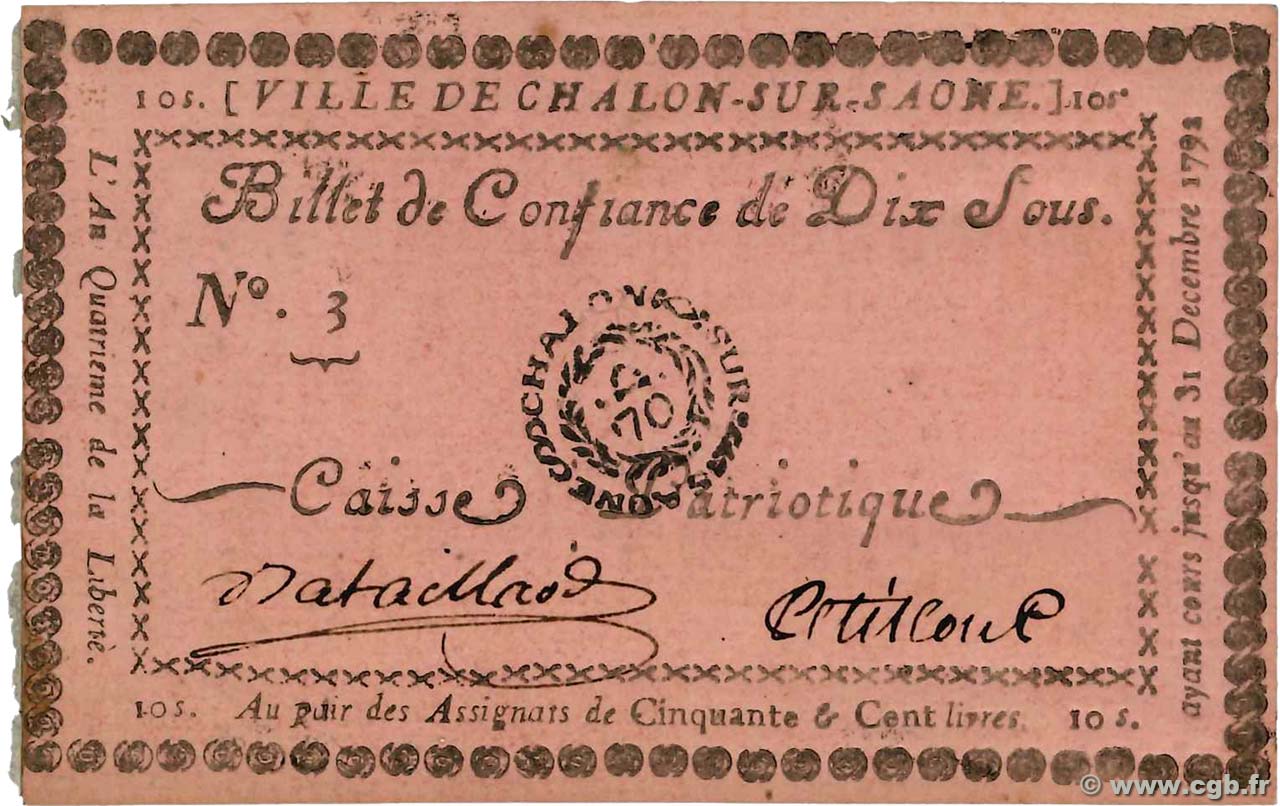 10s. [ VILLE DE CHALON-SUR-SAONE. ] 10s.
L'An Quatrieme de la Liberté.
ayant cours jusqu'au 31 Decembre 1792
Billet de Confiance de Dix Sous.
N°. 3
CHALON SUR SAONE
70
Caisse Patriotique
Bataillard
10s. Au pair des Assignats de Cinquante & Cent livres. 10 s.
© www.cgb.fr